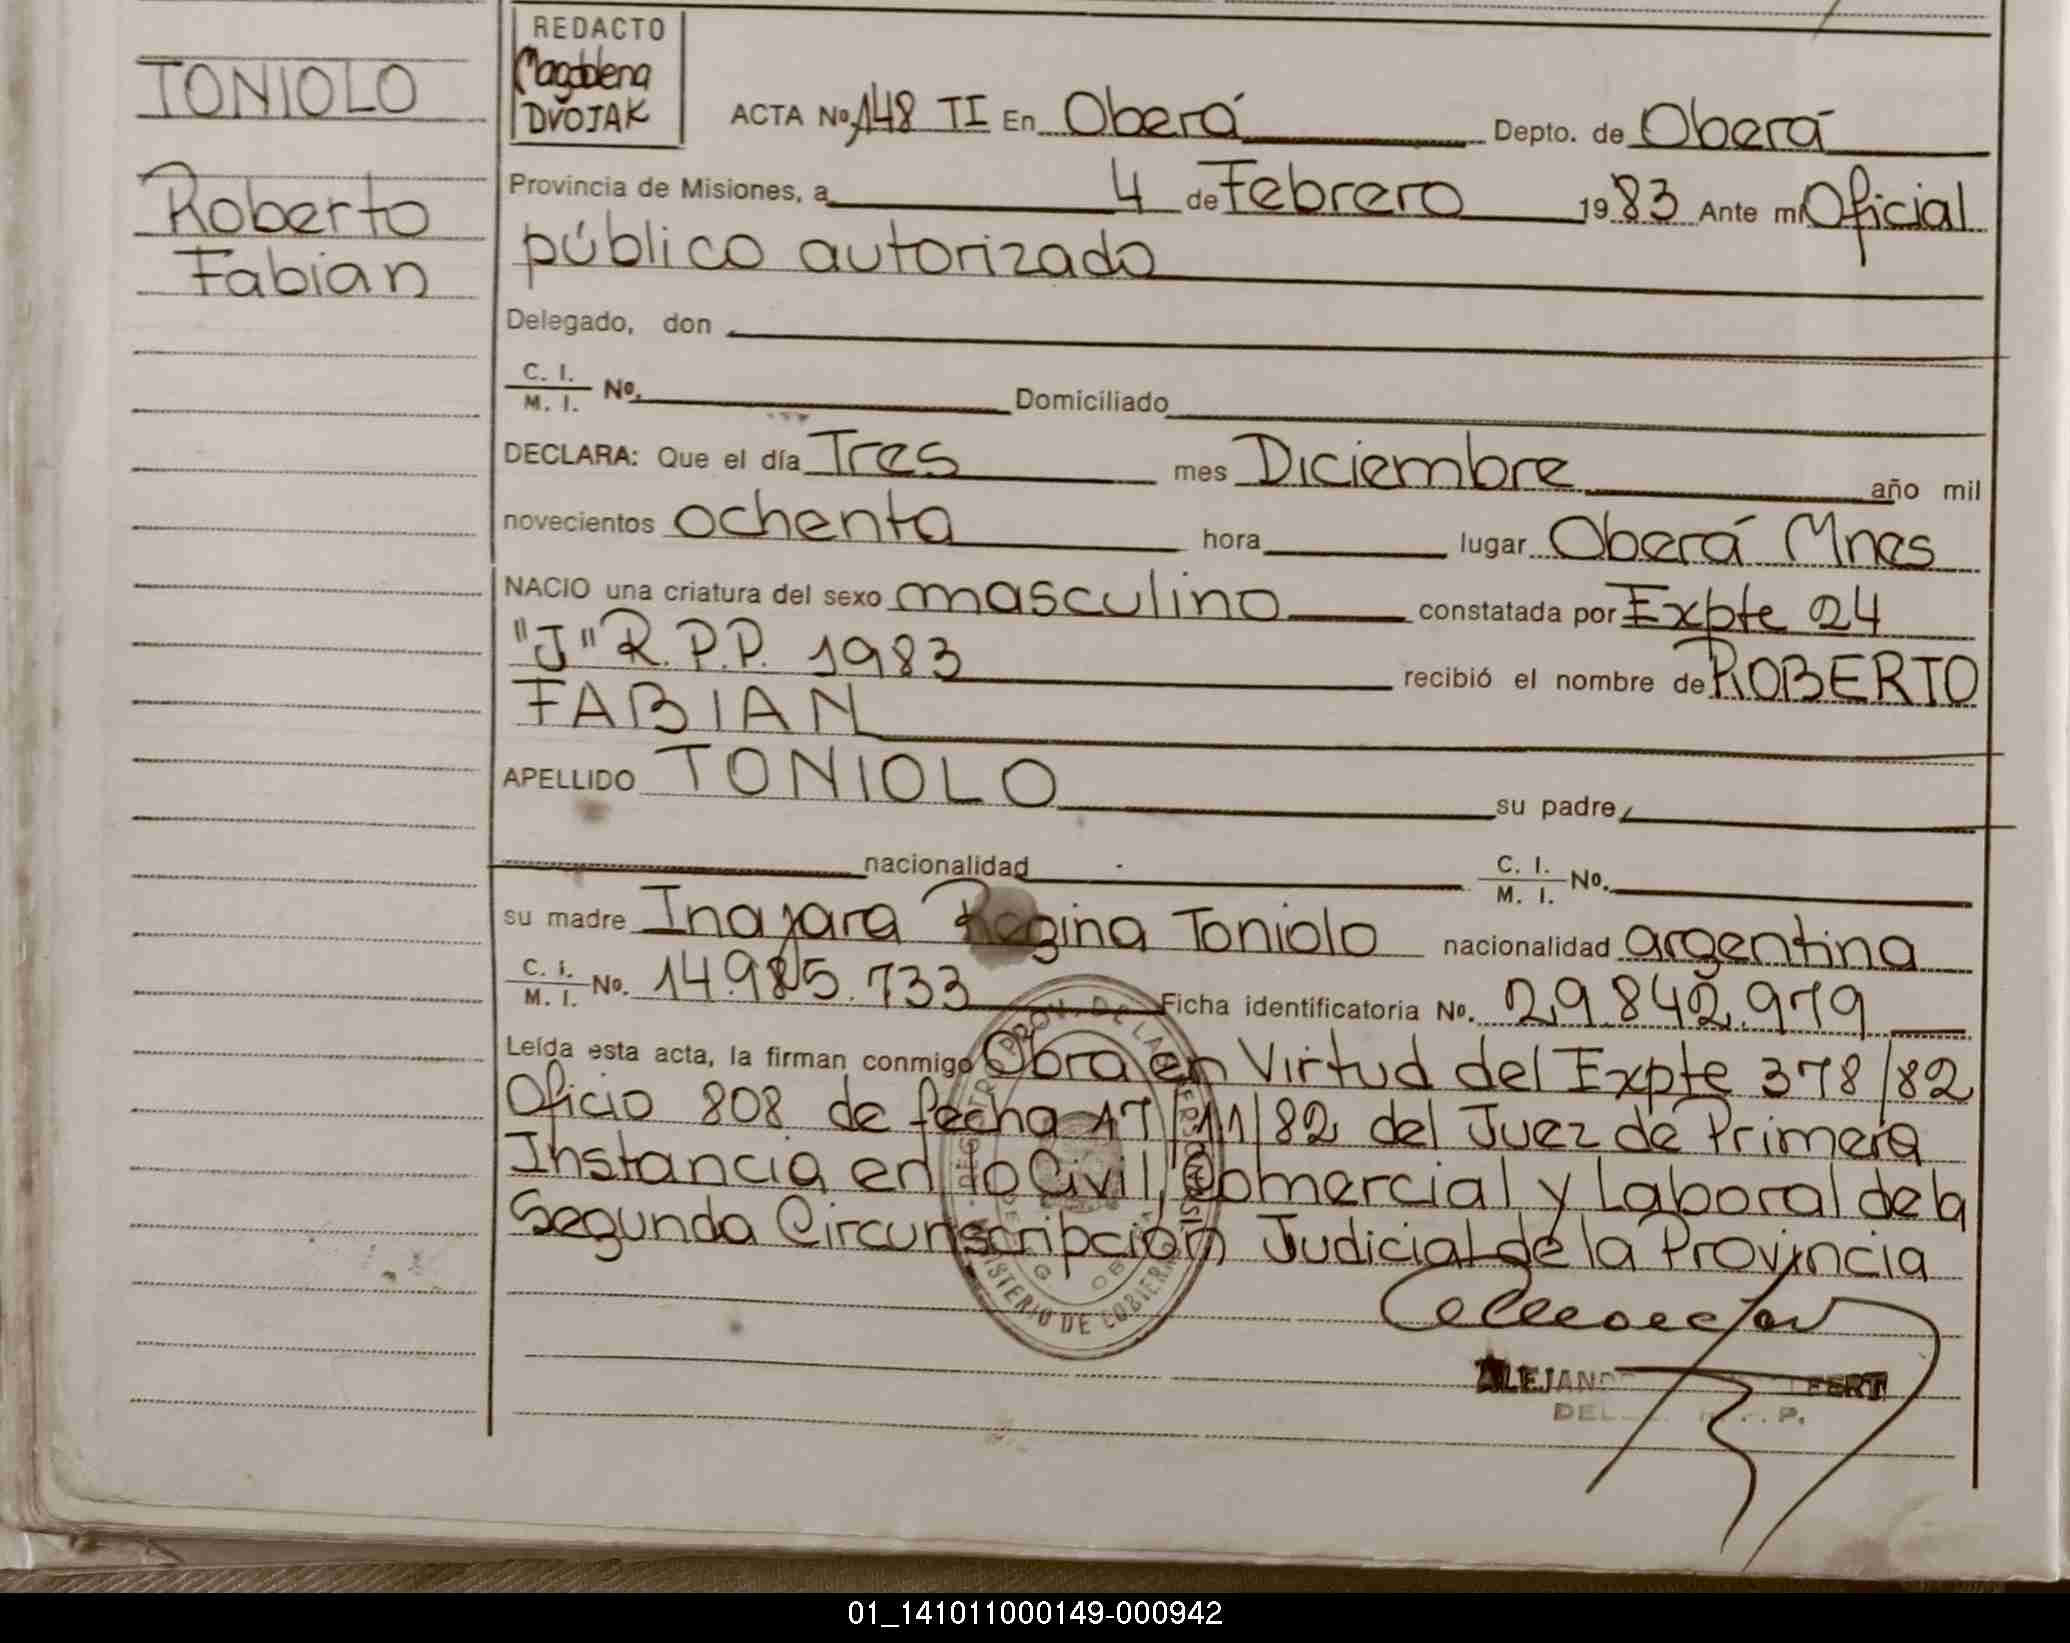 REDACTO
Magdalena
DVOJAK
TONIOLO
Roberto
Fabian
ACTA Nº 148 TI En Oberá Depto. de Oberá
Provincia de Misiones, a 4 de Febrero 1983 Ante mi Oficial
público autorizado
Delegado, don
C. I. / M. I. Nº. Domiciliado
DECLARA: Que el día Tres mes Diciembre año mil
novecientos ochenta hora lugar Oberá Mnes
NACIO una criatura del sexo masculino constatada por Expte 24
"J" R.P.P. 1983 recibió el nombre de ROBERTO
FABIAN
APELLIDO TONIOLO su padre
nacionalidad C. I. / M. I. Nº.
su madre Inajara Regina Toniolo nacionalidad argentina
C. I. / M. I. Nº. 14.985.733 Ficha identificatoria Nº. 29.842.979
Leída esta acta, la firman conmigo Obra en Virtud del Expte 378/82
Oficio 808 de fecha 17/11/82 del Juez de Primera
Instancia en lo Civil, Comercial y Laboral de la
Segunda Circunscripción Judicial de la Provincia
MINISTERIO DE GOBIERNO
01_141011000149-000942